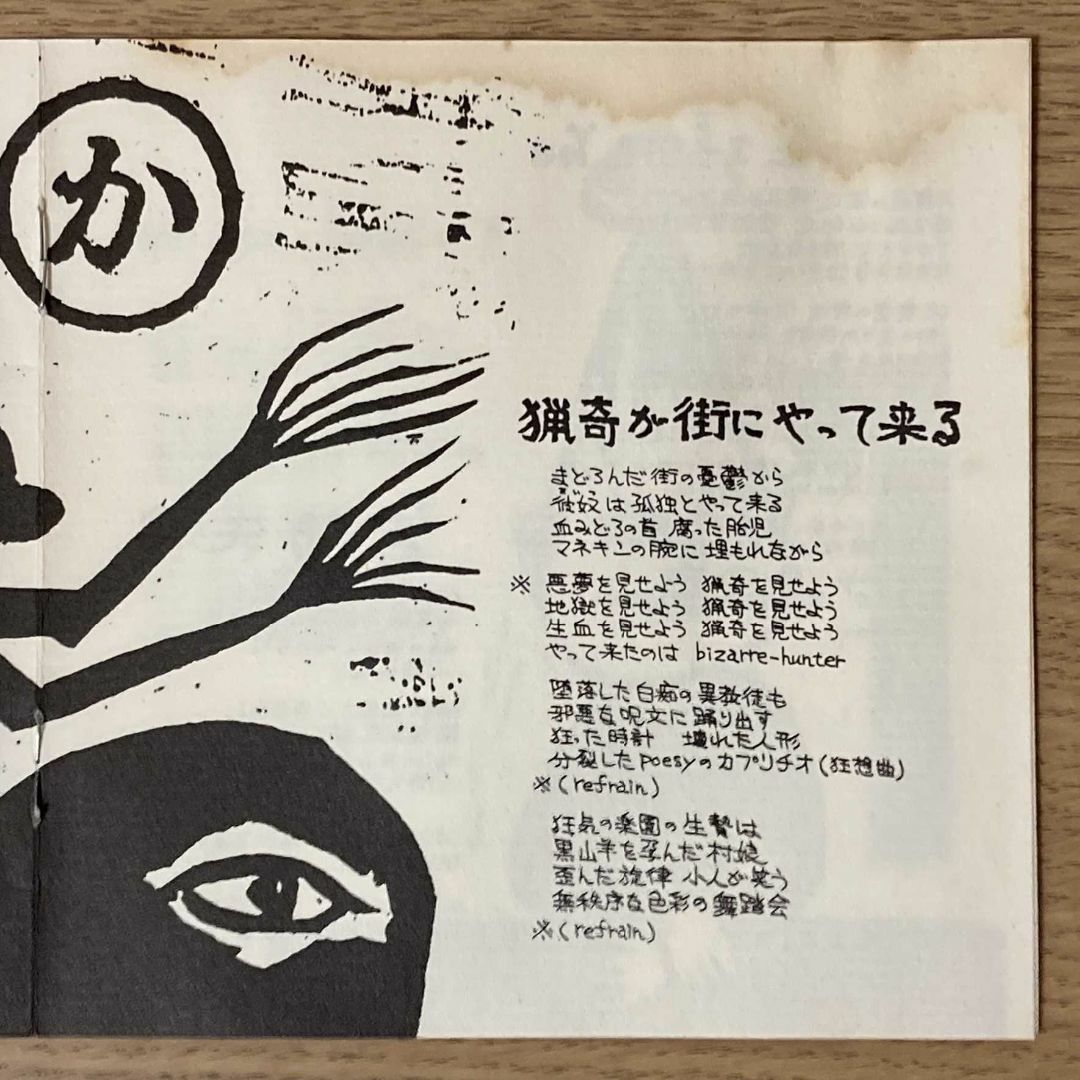 か
猟奇が街にやって来る
まどろんだ街の憂鬱から
彼奴は孤独とやって来る
血みどろの首 腐った胎児
マネキンの腕に 埋もれながら
※ 悪夢を見せよう 猟奇を見せよう
地獄を見せよう 猟奇を見せよう
生血を見せよう 猟奇を見せよう
やって来たのは bizarre-hunter
堕落した白痴の異教徒も
邪悪な呪文に踊り出す
狂った時計 壊れた人形
分裂したpoesyのカプリチオ(狂想曲)
※(refrain)
狂気の楽園の生贄は
黒山羊を孕んだ村娘
歪んだ旋律 小人が笑う
無秩序な色彩の舞踏会
※(refrain)